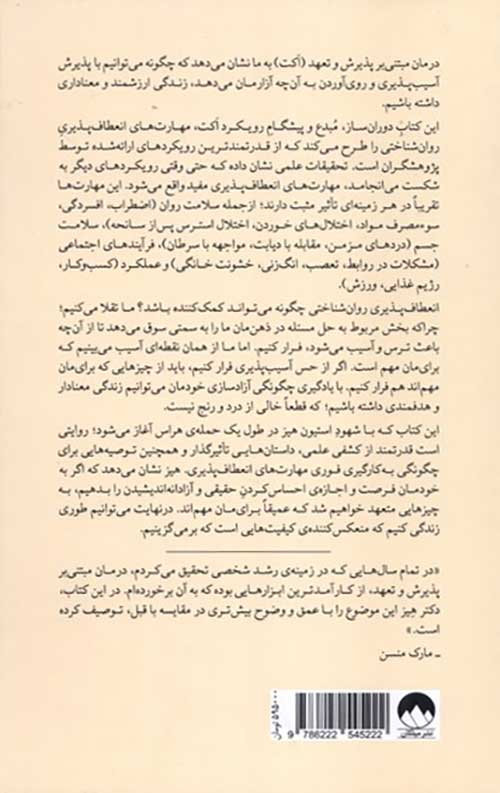 درمان مبتنی‌بر پذیرش و تعهد (اَکت) به ما نشان می‌دهد که چگونه می‌توانیم با پذیرش
آسیب‌پذیری و روی‌آوردن به آن‌چه آزارمان می‌دهد، زندگی ارزشمند و معناداری
داشته باشیم.
این کتابِ دوران‌ساز، مُبدع و پیشگامِ رویکرد اَکت، مهارت‌های انعطاف‌پذیریِ
روان‌شناختی را طرح می‌کند که از قدرتمندترین رویکردهای ارائه‌شده توسط
پژوهشگران است. تحقیقات علمی نشان داده که حتی وقتی رویکردهای دیگر به
شکست می‌انجامد، مهارت‌های انعطاف‌پذیری مفید واقع می‌شود. این مهارت‌ها
تقریباً در هر زمینه‌ای تأثیر مثبت دارند؛ ازجمله سلامت روان (اضطراب، افسردگی،
سوءمصرف مواد، اختلال‌های خوردن، اختلال استرس پس‌از سانحه)، سلامت
جسم (دردهای مزمن، مقابله با دیابت، مواجهه با سرطان)، فرآیندهای اجتماعی
(مشکلات در روابط، تعصب، انگ‌زنی، خشونت خانگی) و عملکرد (کسب‌وکار،
رژیم غذایی، ورزش).
انعطاف‌پذیری روان‌شناختی چگونه می‌تواند کمک‌کننده باشد؟ ما تقلا می‌کنیم؛
چراکه بخش مربوط به حل مسئله در ذهن‌مان ما را به سمتی سوق می‌دهد تا از آن‌چه
باعث ترس و آسیب می‌شود، فرار کنیم. اما ما از همان نقطه‌ای آسیب می‌بینیم که
برای‌مان مهم است. اگر از حس آسیب‌پذیری فرار کنیم، باید از چیزهایی که برای‌مان
مهم‌اند هم فرار کنیم. با یادگیری چگونگی آزادسازی خودمان می‌توانیم زندگی معنادار
و هدفمندی داشته باشیم؛ که قطعاً خالی از درد و رنج نیست.
این کتاب که با شهودِ استیون هیز در طول یک حمله‌ی هراس آغاز می‌شود؛ روایتی
است قدرتمند از کشفی علمی، داستان‌هایی تأثیرگذار و همچنین توصیه‌هایی برای
چگونگی به‌کارگیری فوری مهارت‌های انعطاف‌پذیری. هیز نشان می‌دهد که اگر به
خودمان فرصت و اجازه‌ی احساس‌کردنِ حقیقی و آزادانه‌اندیشیدن را بدهیم، به
چیزهایی متعهد خواهیم شد که عمیقاً برای‌مان مهم‌اند. درنهایت می‌توانیم طوری
زندگی کنیم که منعکس‌کننده‌ی کیفیت‌هایی است که برمی‌گزینیم.
«در تمام سال‌هایی که در زمینه‌ی رشد شخصی تحقیق می‌کردم، درمان مبتنی‌بر
پذیرش و تعهد، از کارآمدترین ابزارهایی بوده که به آن برخورده‌ام. در این کتاب،
دکتر هیز این موضوع را با عمق و وضوح بیش‌تری در مقایسه با قبل، توصیف کرده
است.»
ـ مارک منسن
۵۹۵۰۰۰ تومان
9 786222 545222
نشر میلکان